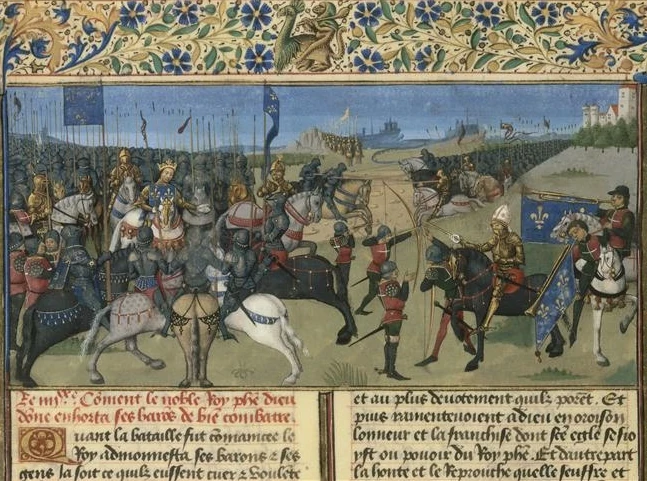 Coment le noble Roy phe dieu
dõne enhorta ses barõs de biẽ combatre.
Quant la bataille fut cõmancee le
Roy admonnesta ses barons & ses
gens Ja soit ce quilz eussent cuer & voulete
et au plus deuotement quilz porẽt. Et
puis ramenteuoient a dieu en oroison
lonneur et la franchise dont sẽe egle sesio
yst ou pouoir du Roy phe. Et dautrepart
la honte et le Reprouche quelle seuffre et